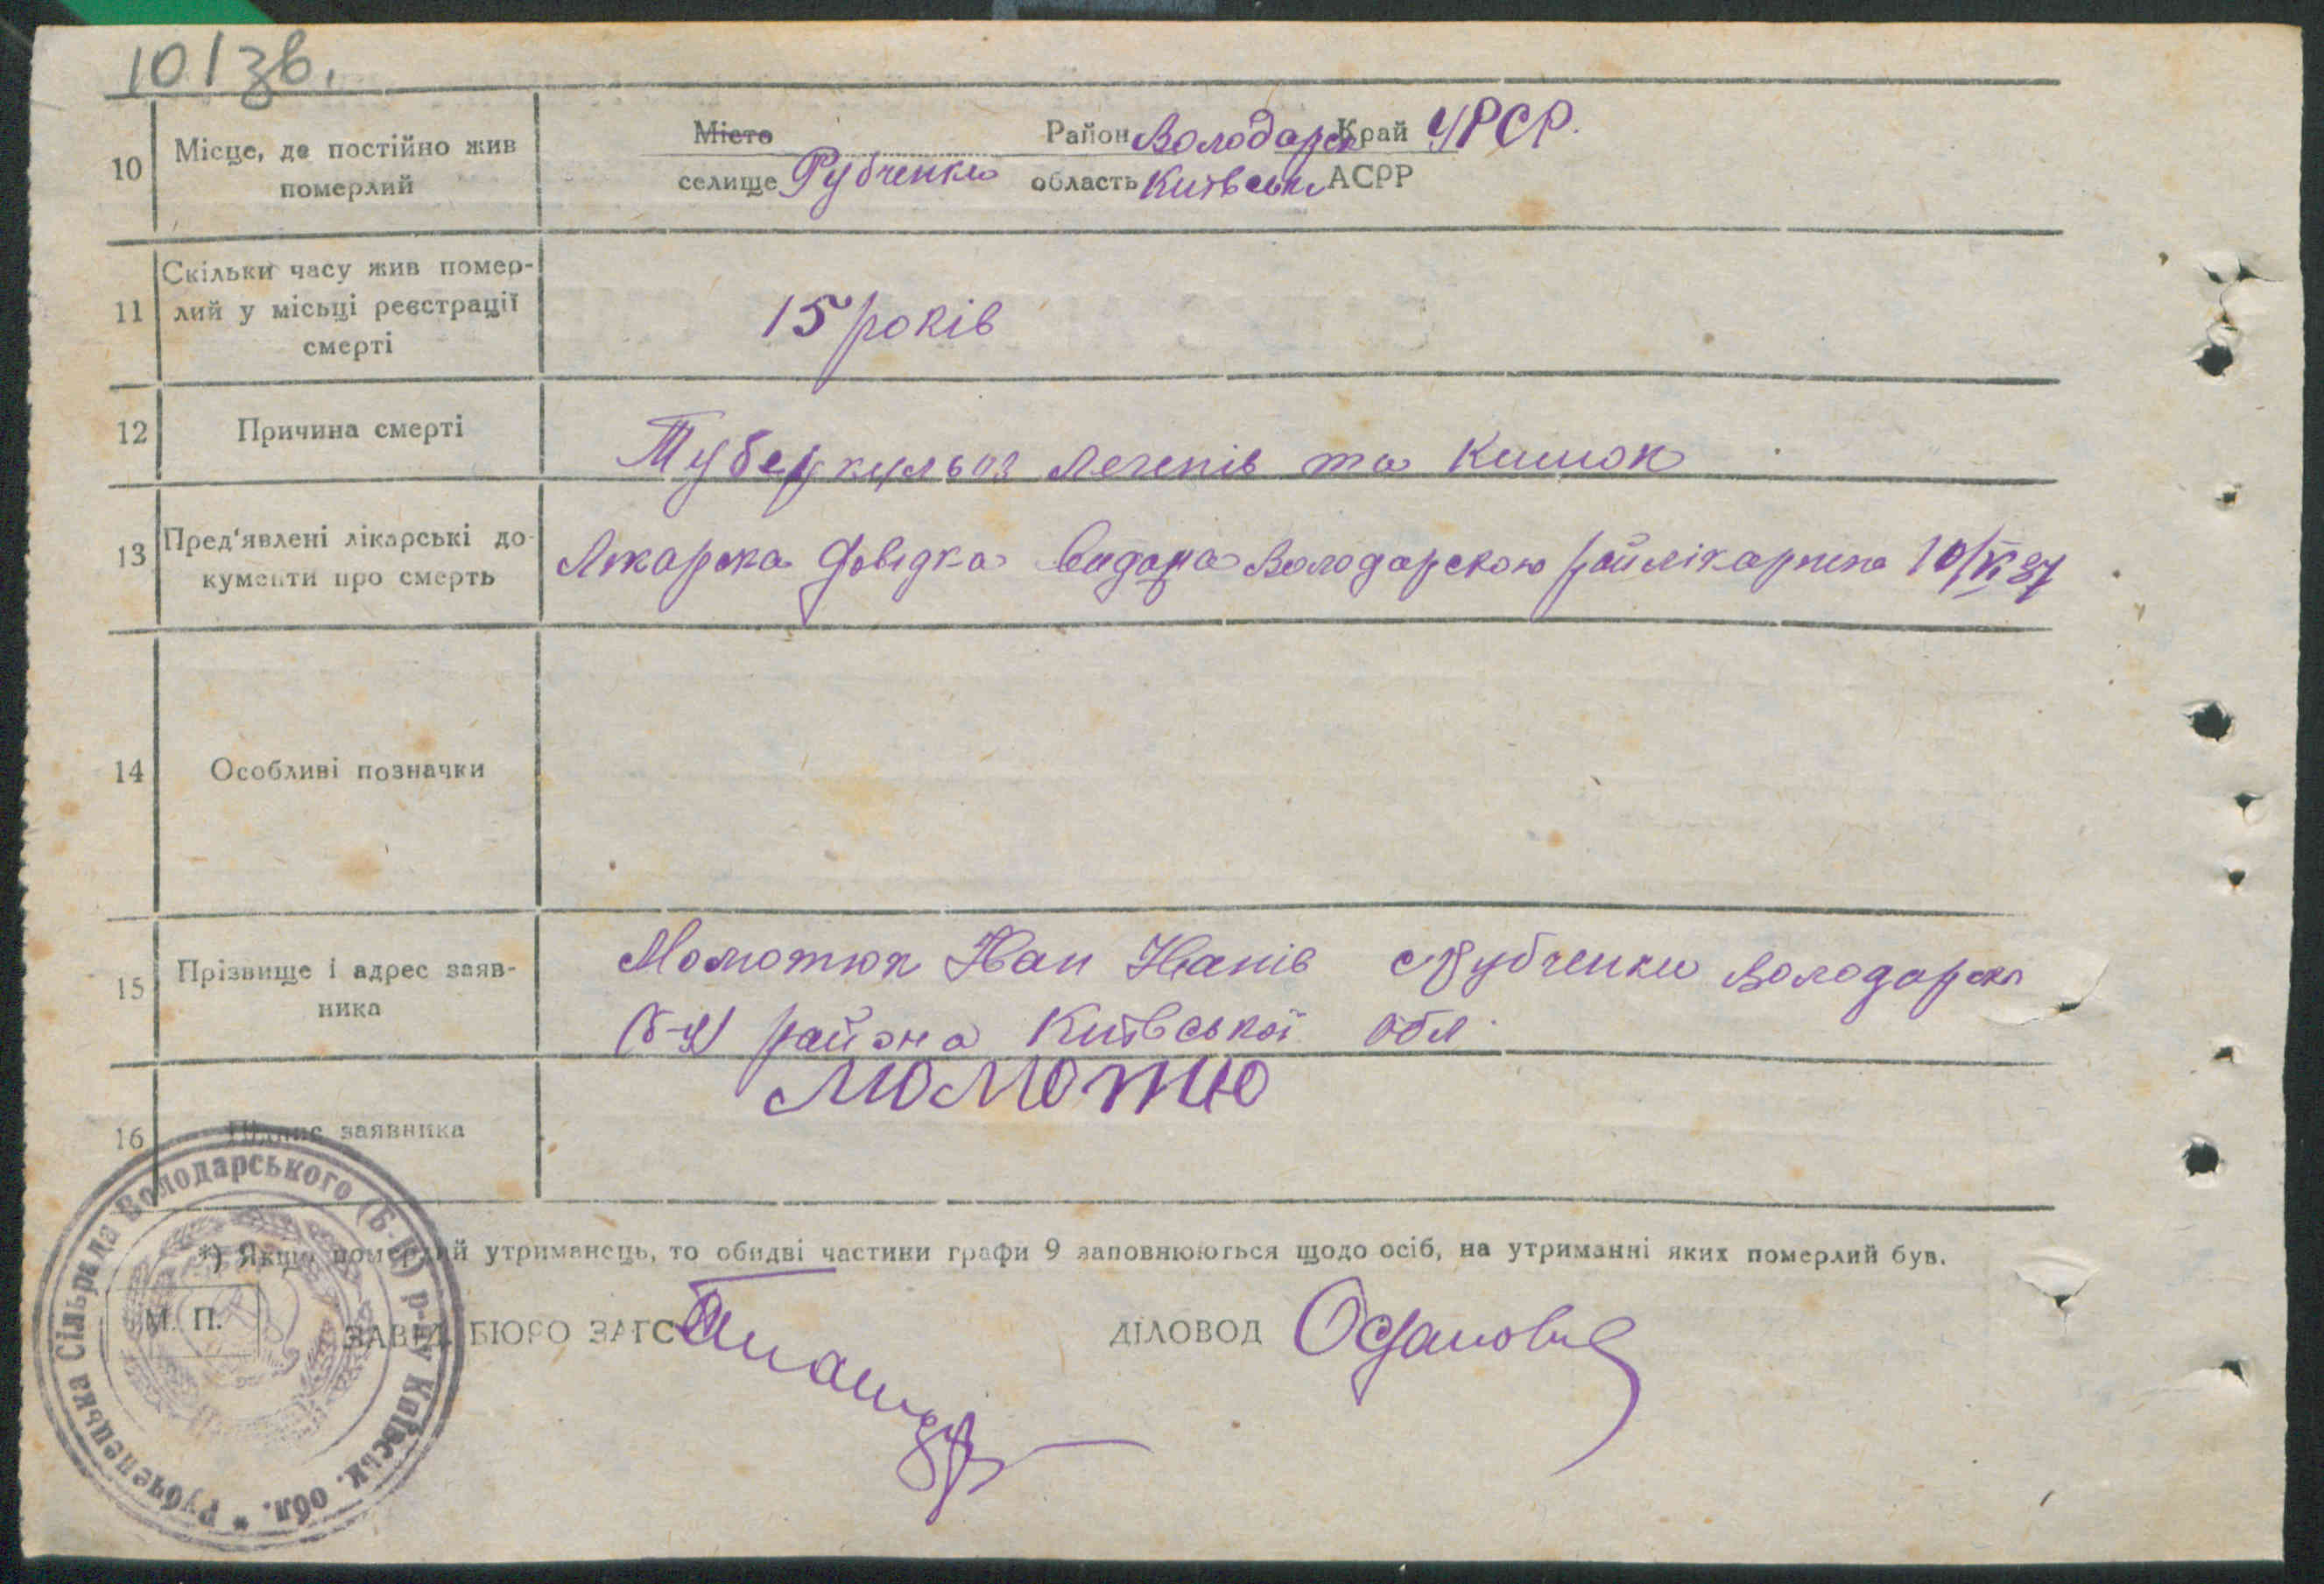 101зв.
10 Місце, де постійно жив померлий
Місто Район Володарськ Край УРСР.
селище Рубченки область Київськ АСРР
11 Скільки часу жив помер-
лий у місьці реєстрації
смерті
15 років
12 Причина смерті
Туберкульоз легенів та кишок
13 Пред'явлені лікарські до-
кументи про смерть
Лікарска довідка видана Володарскою райлікарнею 10/VI 37
14 Особливі позначки
15 Прізвище і адрес заяв-
ника
Момотюк Іван Іванів с Рубченки Володарско
(Б-Ц) района Київської обл.
16 Підпис заявника
Момотю
*) Якщо померлий утриманець, то обидві частини графи 9 заповнюються щодо осіб, на утриманні яких померлий був.
М. П.
ЗАВІД. БЮРО ЗАГС
ДІЛОВОД
Рубченецька Сільрада Володарського (Б-Ц) р-ну Київськ. обл. *